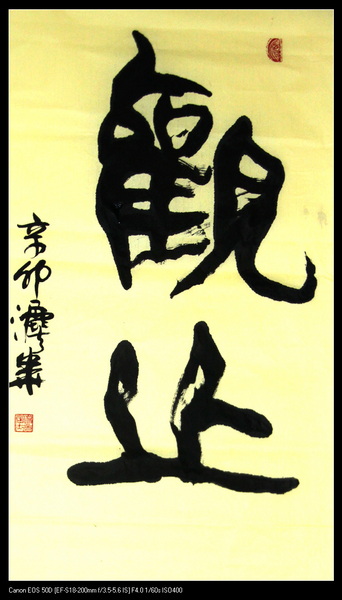 觀止
辛卯
Canon EOS 50D [EF-S18-200mm f/3.5-5.6 IS] F4.0 1/60s ISO400